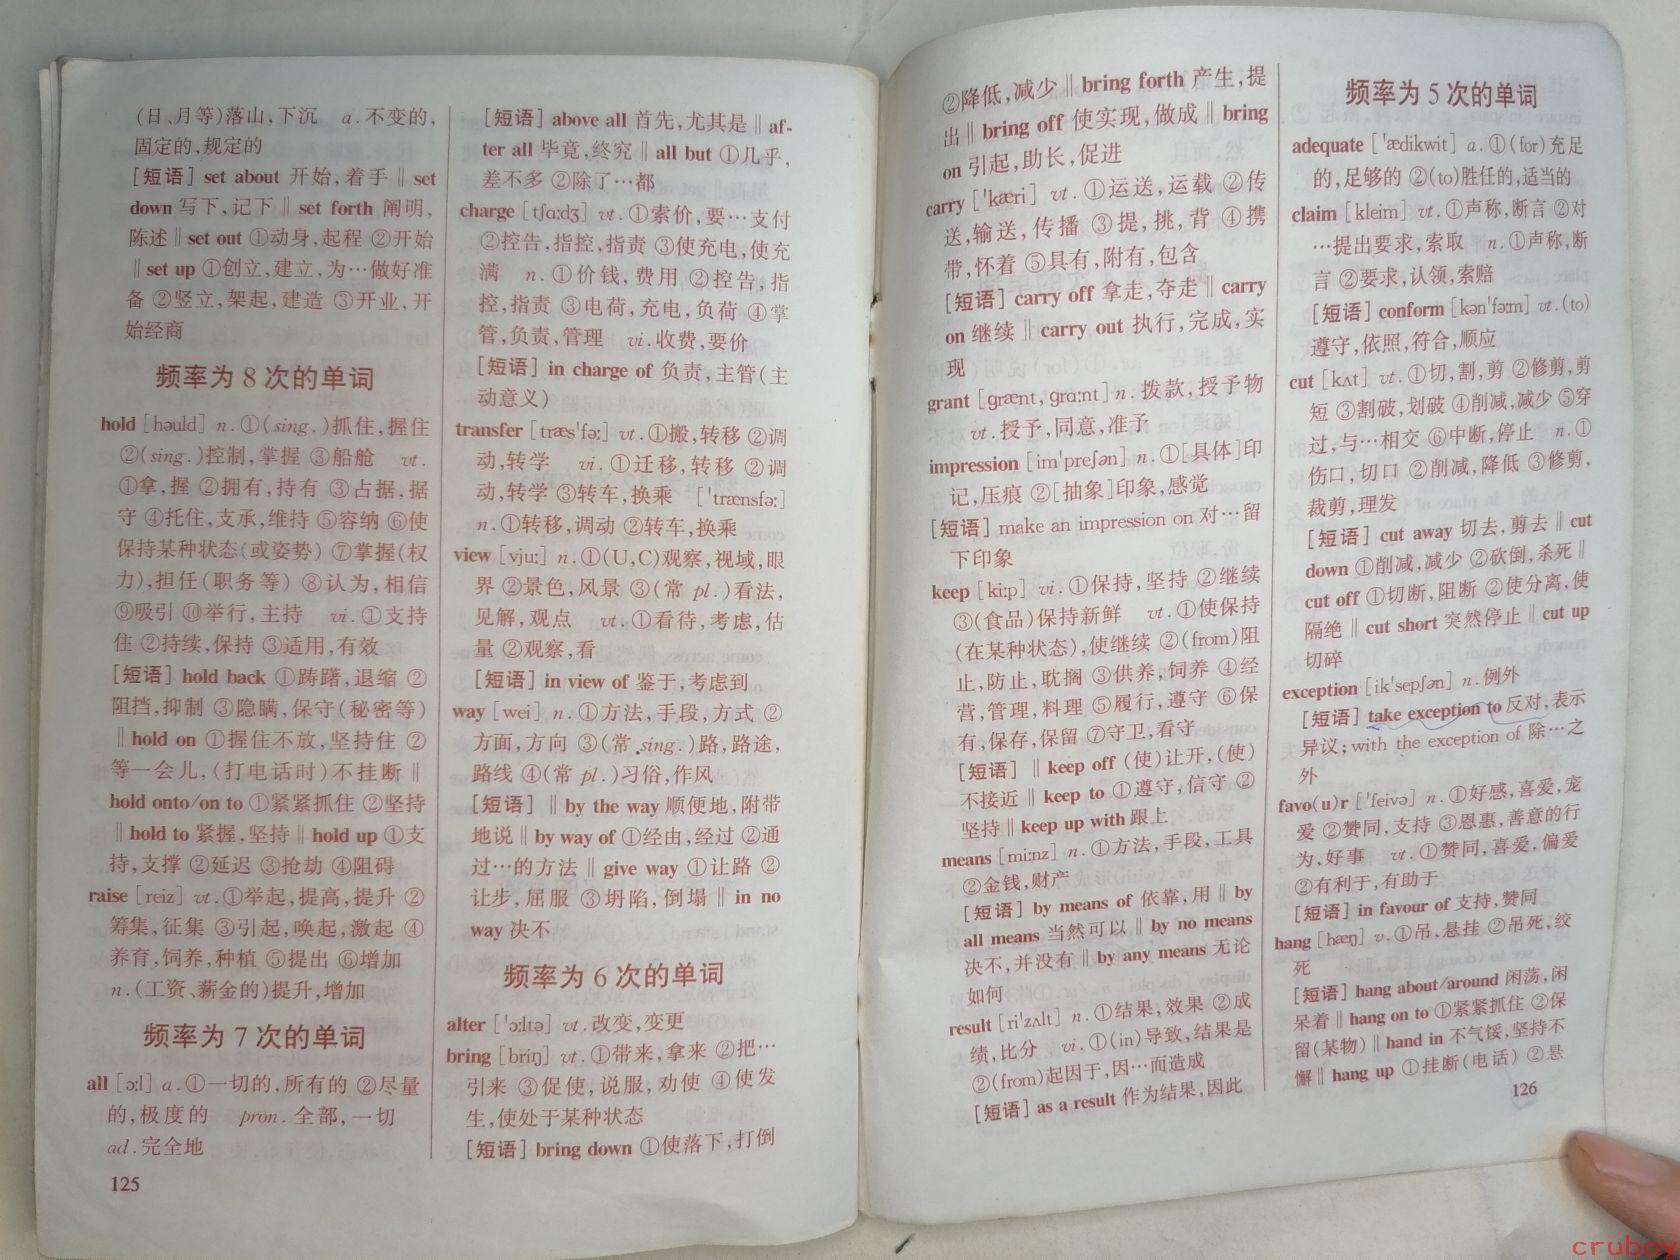 (日、月等)落山,下沉 a.不变的,
固定的,规定的
[短语] set about 开始,着手‖set
down 写下,记下‖set forth 阐明,
陈述‖set out ①动身,起程 ②开始
‖set up ①创立,建立,为…做好准
备 ②竖立,架起,建造 ③开业,开
始经商
频率为8次的单词
hold [həuld] n.①(sing.)抓住,握住
②(sing.)控制,掌握 ③船舱 vt.
①拿,握 ②拥有,持有 ③占据,据
守 ④托住,支承,维持 ⑤容纳 ⑥使
保持某种状态(或姿势) ⑦掌握(权
力),担任(职务等) ⑧认为,相信
⑨吸引 ⑩举行,主持 vi.①支持
住 ②持续,保持 ③适用,有效
[短语] hold back ①踌躇,退缩 ②
阻挡,抑制 ③隐瞒,保守(秘密等)
‖hold on ①握住不放,坚持住 ②
等一会儿,(打电话时)不挂断‖
hold onto/on to ①紧紧抓住 ②坚持
‖hold to 紧握,坚持‖hold up ①支
持,支撑 ②延迟 ③抢劫 ④阻碍
raise [reiz] vt.①举起,提高,提升 ②
筹集,征集 ③引起,唤起,激起 ④
养育,饲养,种植 ⑤提出 ⑥增加
n.(工资、薪金的)提升,增加
频率为7次的单词
all [ɔ:l] a.①一切的,所有的 ②尽量
的,极度的 pron.全部,一切
ad.完全地
125
[短语] above all 首先,尤其是‖af-
ter all 毕竟,终究‖all but ①几乎,
差不多 ②除了…都
charge [tʃɑ:dʒ] vt.①索价,要…支付
②控告,指控,指责 ③使充电,使充
满 n.①价钱,费用 ②控告,指
控,指责 ③电荷,充电,负荷 ④掌
管,负责,管理 vi.收费,要价
[短语] in charge of 负责,主管(主
动意义)
transfer [træs'fə:] vt.①搬,转移 ②调
动,转学 vi.①迁移,转移 ②调
动,转学 ③转车,换乘 ['trænsfə:]
n.①转移,调动 ②转车,换乘
view [vju:] n.①(U,C)观察,视域,眼
界 ②景色,风景 ③(常 pl.)看法,
见解,观点 vt.①看待,考虑,估
量 ②观察,看
[短语] in view of 鉴于,考虑到
way [wei] n.①方法,手段,方式 ②
方面,方向 ③(常 sing.)路,路途,
路线 ④(常 pl.)习俗,作风
[短语]‖by the way 顺便地,附带
地说‖by way of ①经由,经过 ②通
过…的方法‖give way ①让路 ②
让步,屈服 ③坍陷,倒塌‖in no
way 决不
频率为6次的单词
alter ['ɔ:ltə] vt.改变,变更
bring [briŋ] vt.①带来,拿来 ②把…
引来 ③促使,说服,劝使 ④使发
生,使处于某种状态
[短语] bring down ①使落下,打倒
②降低,减少‖bring forth 产生,提
出‖bring off 使实现,做成‖bring
on 引起,助长,促进
carry ['kæri] vt.①运送,运载 ②传
送,输送,传播 ③提,挑,背 ④携
带,怀着 ⑤具有,附有,包含
[短语] carry off 拿走,夺走‖carry
on 继续‖carry out 执行,完成,实
现
grant [grænt,grɑ:nt] n.拨款,授予物
vt.授予,同意,准予
impression [im'preʃən] n.①[具体]印
记,压痕 ②[抽象]印象,感觉
[短语] make an impression on 对…留
下印象
keep [ki:p] vi.①保持,坚持 ②继续
③(食品)保持新鲜 vt.①使保持
(在某种状态),使继续 ②(from)阻
止,防止,耽搁 ③供养,饲养 ④经
营,管理,料理 ⑤履行,遵守 ⑥保
有,保存,保留 ⑦守卫,看守
[短语]‖keep off (使)让开,(使)
不接近‖keep to ①遵守,信守 ②
坚持‖keep up with 跟上
means [mi:nz] n.①方法,手段,工具
②金钱,财产
[短语] by means of 依靠,用‖by
all means 当然可以‖by no means
决不,并没有‖by any means 无论
如何
result [ri'zʌlt] n.①结果,效果 ②成
绩,比分 vi.①(in)导致,结果是
②(from)起因于,因…而造成
[短语] as a result 作为结果,因此
频率为5次的单词
adequate ['ædikwit] a.①(for)充足
的,足够的 ②(to)胜任的,适当的
claim [kleim] vt.①声称,断言 ②对
…提出要求,索取 n.①声称,断
言 ②要求,认领,索赔
[短语] conform [kən'fɔ:m] vt.(to)
遵守,依照,符合,顺应
cut [kʌt] vt.①切,割,剪 ②修剪,剪
短 ③割破,划破 ④削减,减少 ⑤穿
过,与…相交 ⑥中断,停止 n.①
伤口,切口 ②削减,降低 ③修剪,
裁剪,理发
[短语] cut away 切去,剪去‖cut
down ①削减,减少 ②砍倒,杀死‖
cut off ①切断,阻断 ②使分离,使
隔绝‖cut short 突然停止‖cut up
切碎
exception [ik'sepʃən] n.例外
[短语] take exception to 反对,表示
异议;with the exception of 除…之
外
favo(u)r ['feivə] n.①好感,喜爱,宠
爱 ②赞同,支持 ③恩惠,善意的行
为,好事 vt.①赞同,喜爱,偏爱
②有利于,有助于
[短语] in favour of 支持,赞同
hang [hæŋ] v.①吊,悬挂 ②吊死,绞
死
[短语] hang about/around 闲荡,闲
呆着‖hang on to ①紧紧抓住 ②保
留(某物)‖hand in 不气馁,坚持不
懈‖hang up ①挂断(电话) ②悬
126
cruboy